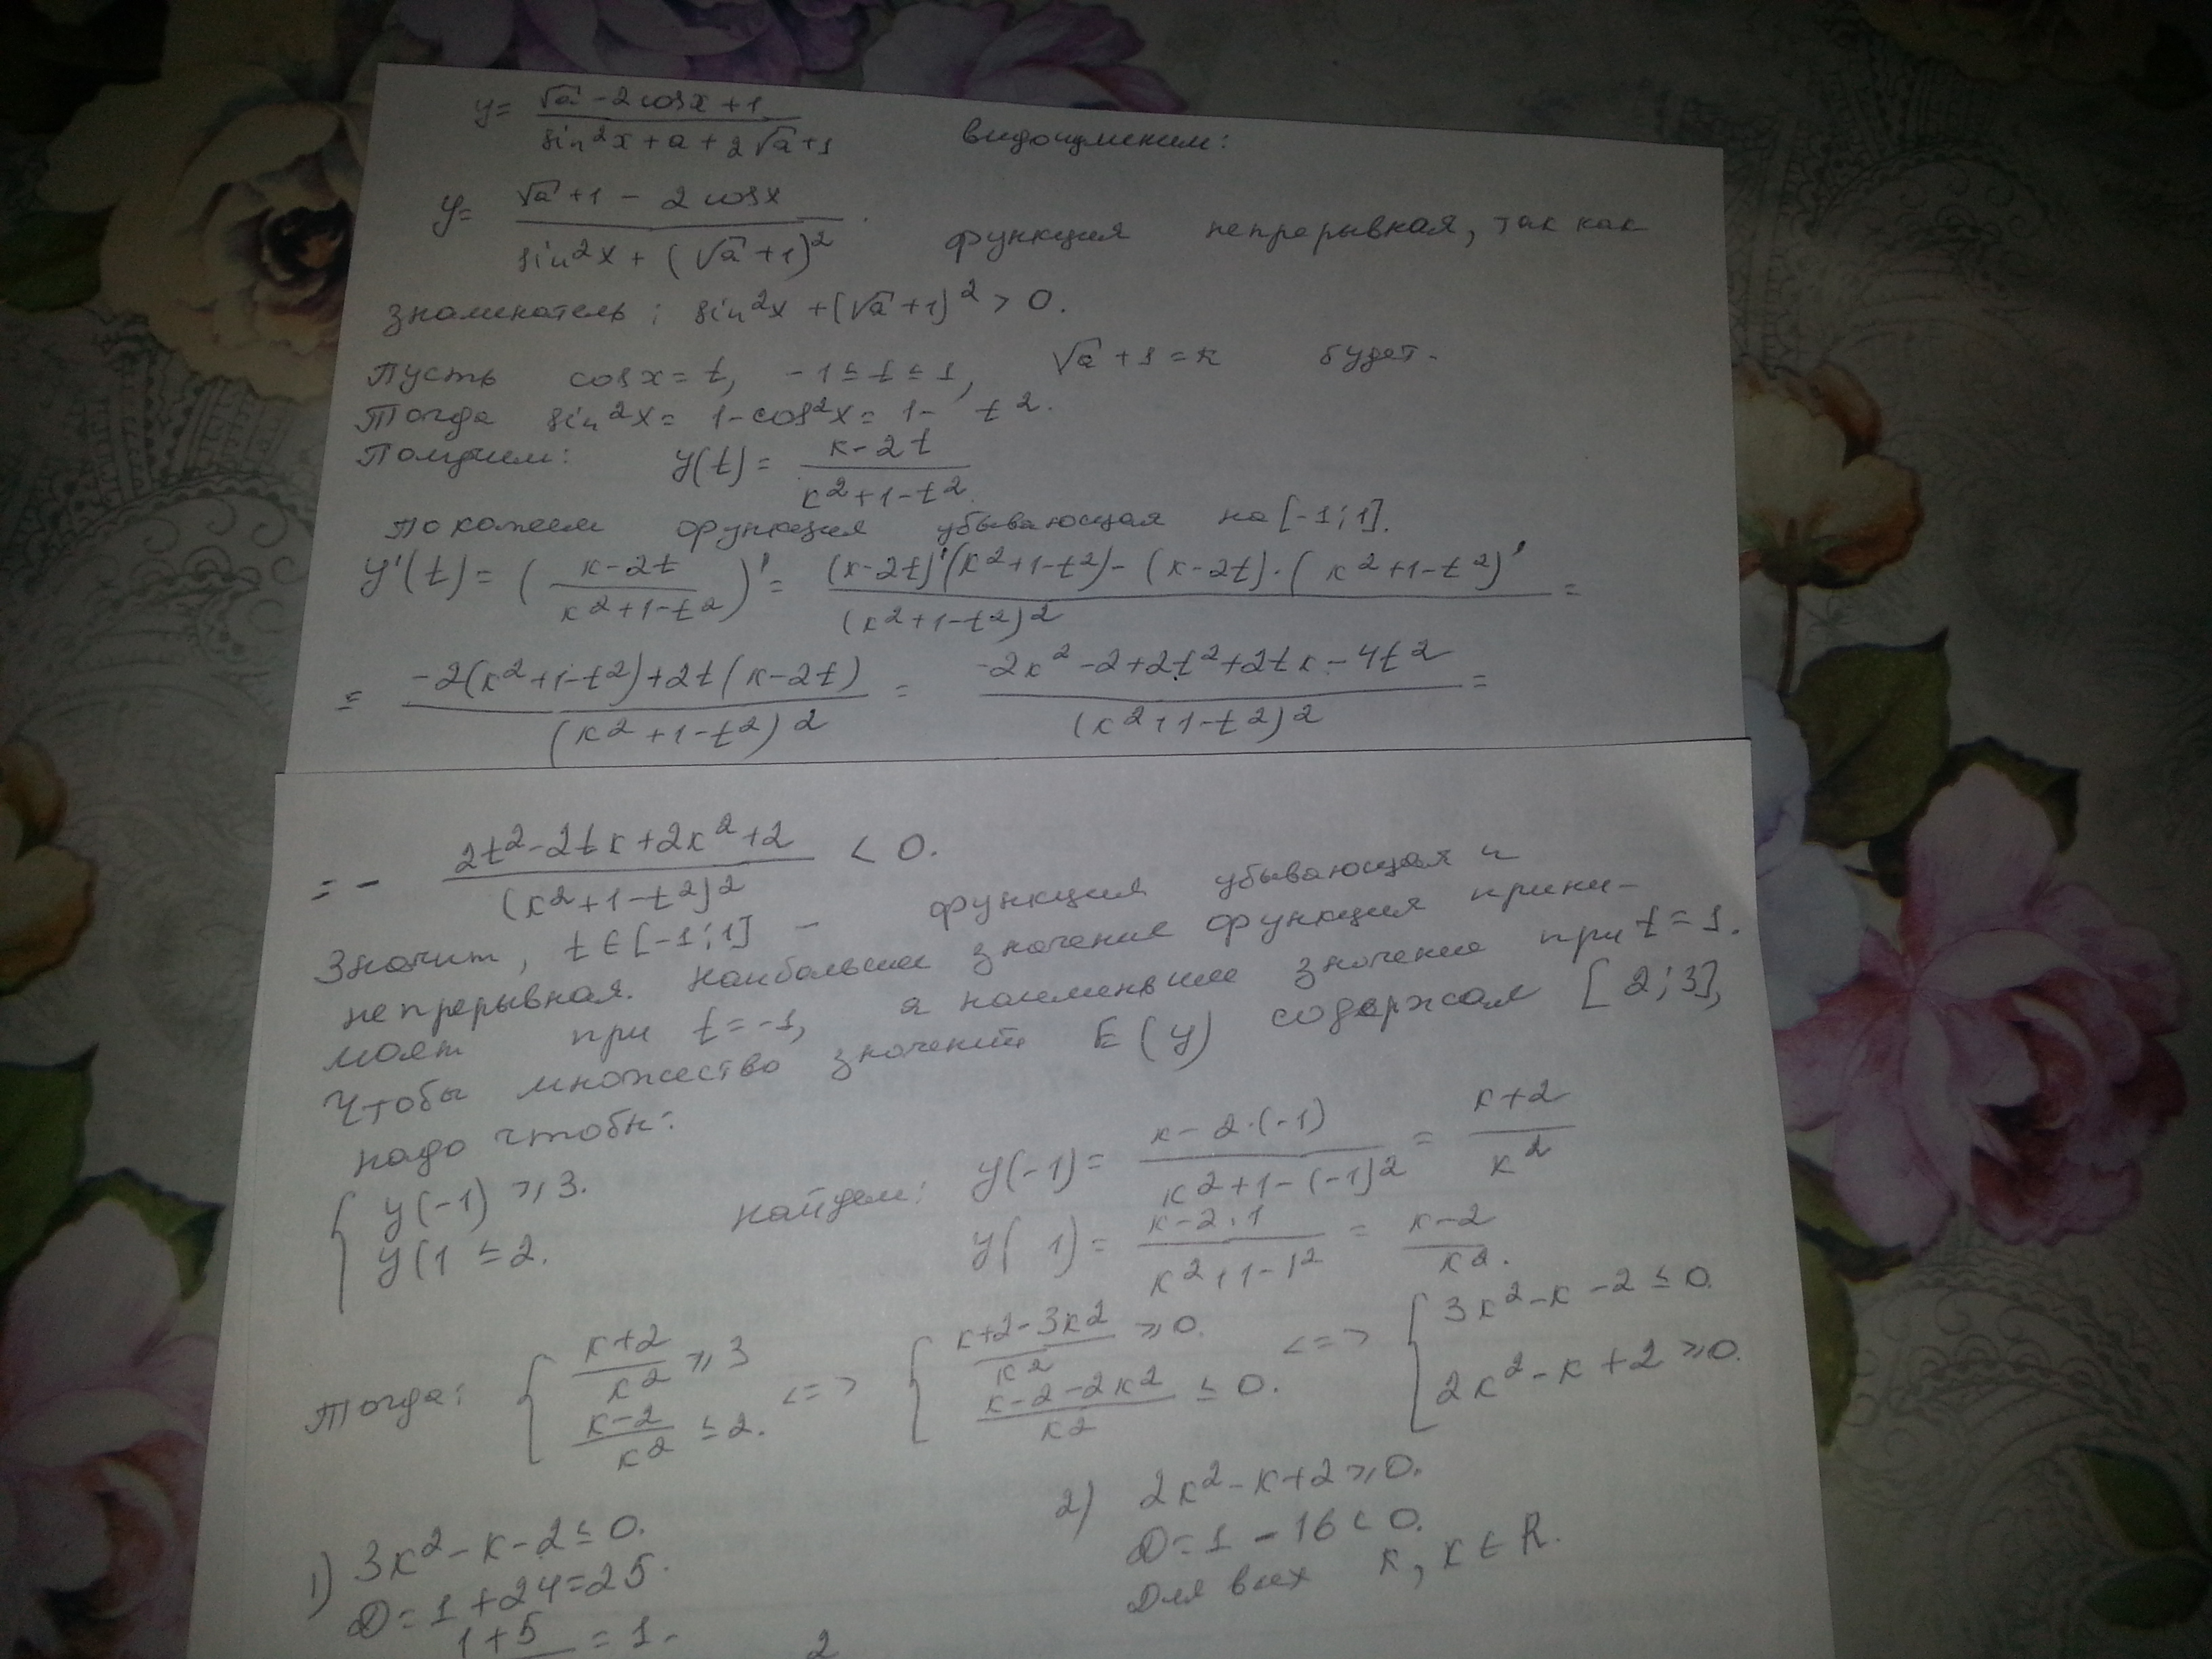 y = (√a - 2cosx + 1)/(sin²x + a + 2√a + 1) видоизменим:
y = (√a + 1 - 2cosx)/(sin²x + (√a + 1)²). функция непрерывная, так как
знаминатель; sin²x + (√a + 1)² > 0.
Пусть cosx = t, -1 ≤ t ≤ 1, √a + 1 = к будет.
Тогда sin²x = 1 - cos²x = 1 - t².
Получим: y(t) = (к - 2t)/(к² + 1 - t²)
Покажем функция убывающая на [-1; 1].
y'(t) = ((к - 2t)/(к² + 1 - t²))' = ((к - 2t)'(к² + 1 - t²) - (к - 2t)·(к² + 1 - t²)')/(к² + 1 - t²)² =
= (-2(к² + 1 - t²) + 2t(к - 2t))/(к² + 1 - t²)² = (-2к² - 2 + 2t² + 2tк - 4t²)/(к² + 1 - t²)² =
= - (2t² - 2tк + 2к² + 2)/(к² + 1 - t²)² < 0.
Значит, t ∈ [-1; 1] - функция убывающая и
непрерывная. наибольшее значение функция прини-
мает при t = -1, а наименьшее значение при t = 1.
Чтобы множество значений E(y) содержал [2; 3],
надо чтобы:
{ y(-1) ≥ 3. найдем: y(-1) = (к - 2·(-1))/(к² + 1 - (-1)²) = (к + 2)/к²
y(1 ≤ 2. y(1) = (к - 2·1)/(к² + 1 - 1²) = (к - 2)/к².
Тогда: { (к + 2)/к² ≥ 3 <=> { (к + 2 - 3к²)/к² ≥ 0. <=> { 3к² - к - 2 ≤ 0.
(к - 2)/к² ≤ 2. (к - 2 - 2к²)/к² ≤ 0. 2к² - к + 2 ≥ 0.
1) 3к² - к - 2 ≤ 0. 2) 2к² - к + 2 ≥ 0.
D = 1 + 24 = 25. D = 1 - 16 < 0.
1 + 5 = 1. 2 Для всех к, к ∈ R.